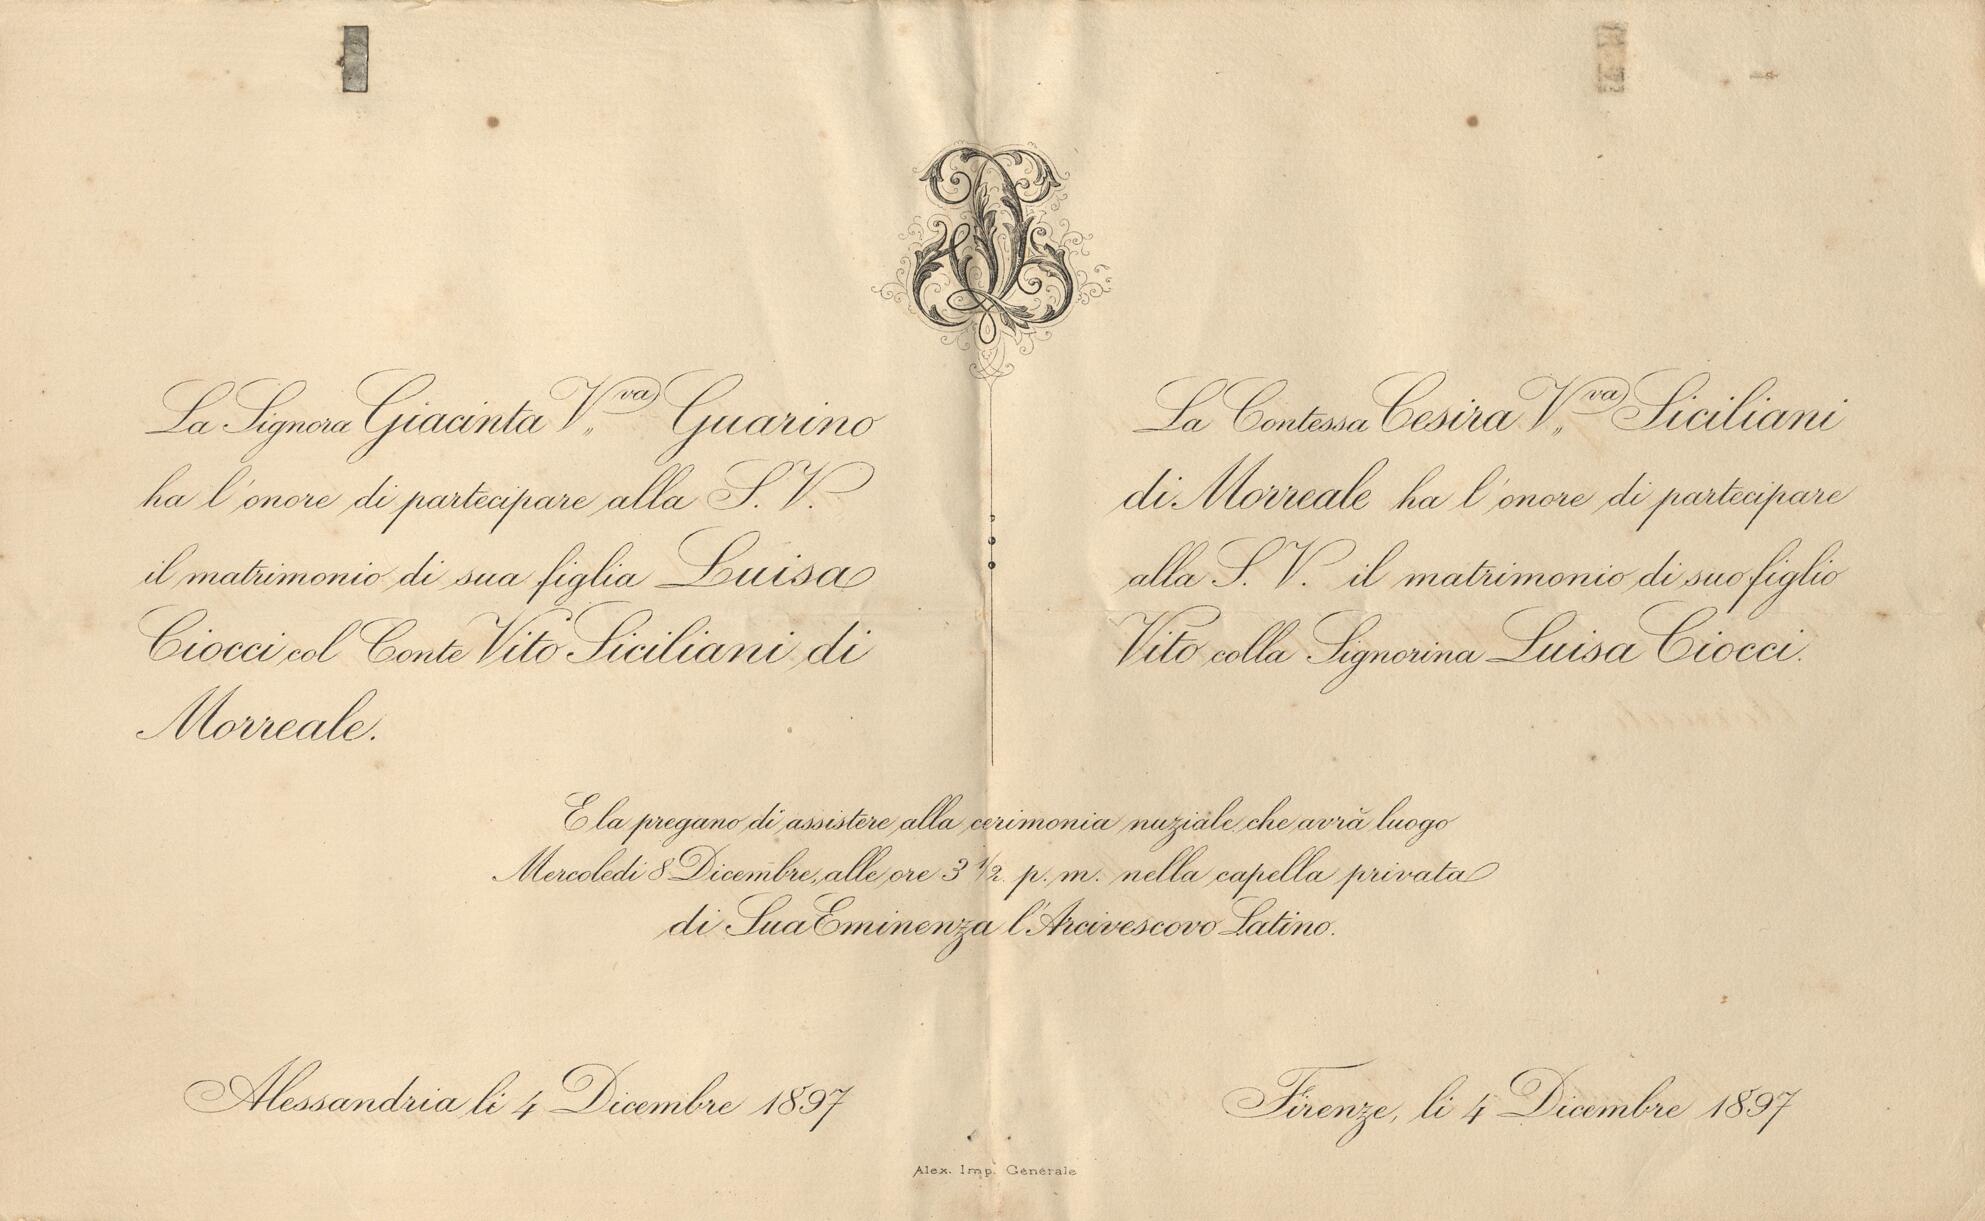 La Signora Giacinta V.va Guarino
ha l'onore di partecipare alla S. V.
il matrimonio di sua figlia Luisa
Ciocci col Conte Vito Siciliani di
Morreale.
La Contessa Cesira V.va Siciliani
di Morreale ha l'onore di partecipare
alla S. V. il matrimonio di suo figlio
Vito colla Signorina Luisa Ciocci.
E la pregano di assistere alla cerimonia nuziale che avrà luogo
Mercoledi 8 Dicembre, alle ore 3 1/2 p. m. nella capella privata
di Sua Eminenza l'Arcivescovo Latino.
Alessandria li 4 Dicembre 1897
Firenze, li 4 Dicembre 1897
Alex. Imp. Générale